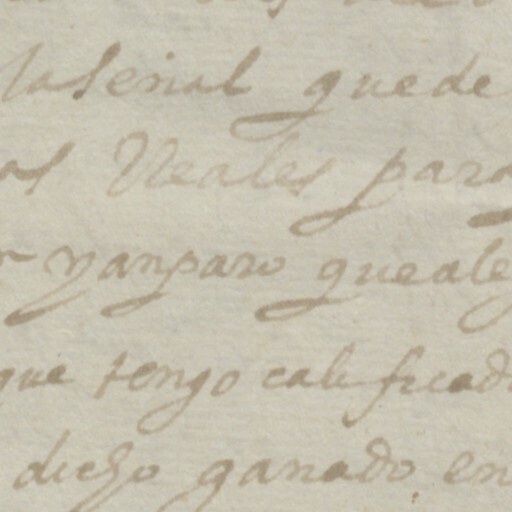 la señal que de
as Reales para
r y anparo que ale
que tengo calificado
dicho ganado en